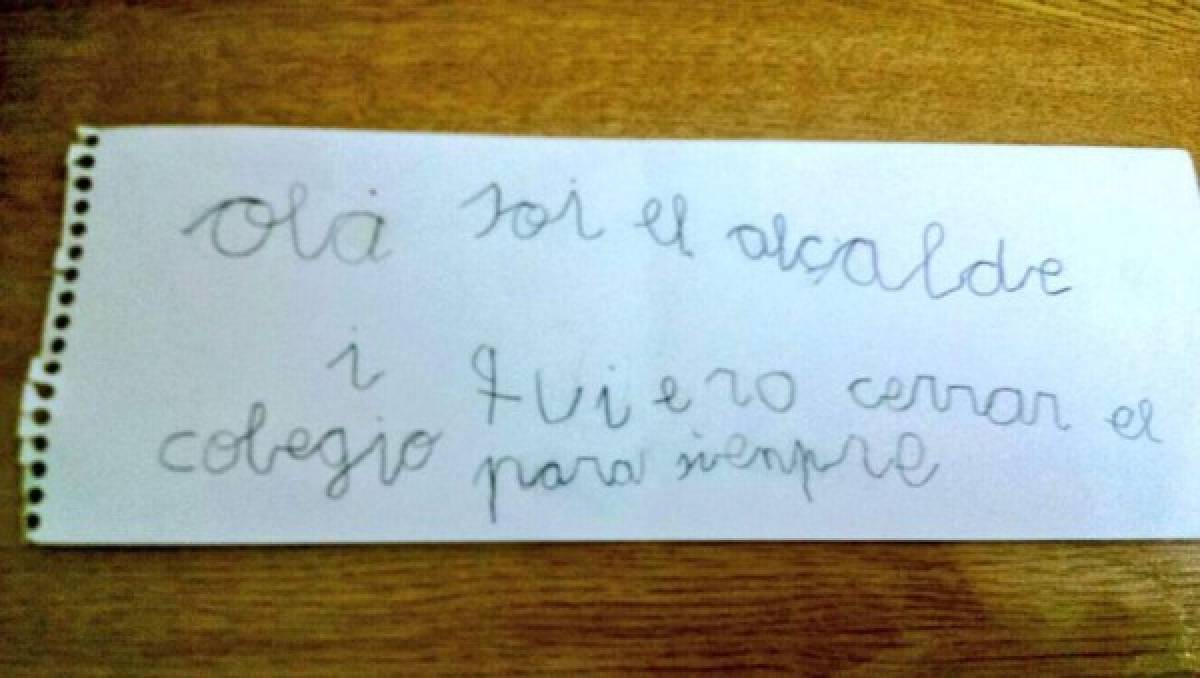 ola soi el alçalde
i quiero cerrar el
colegio para sienpre